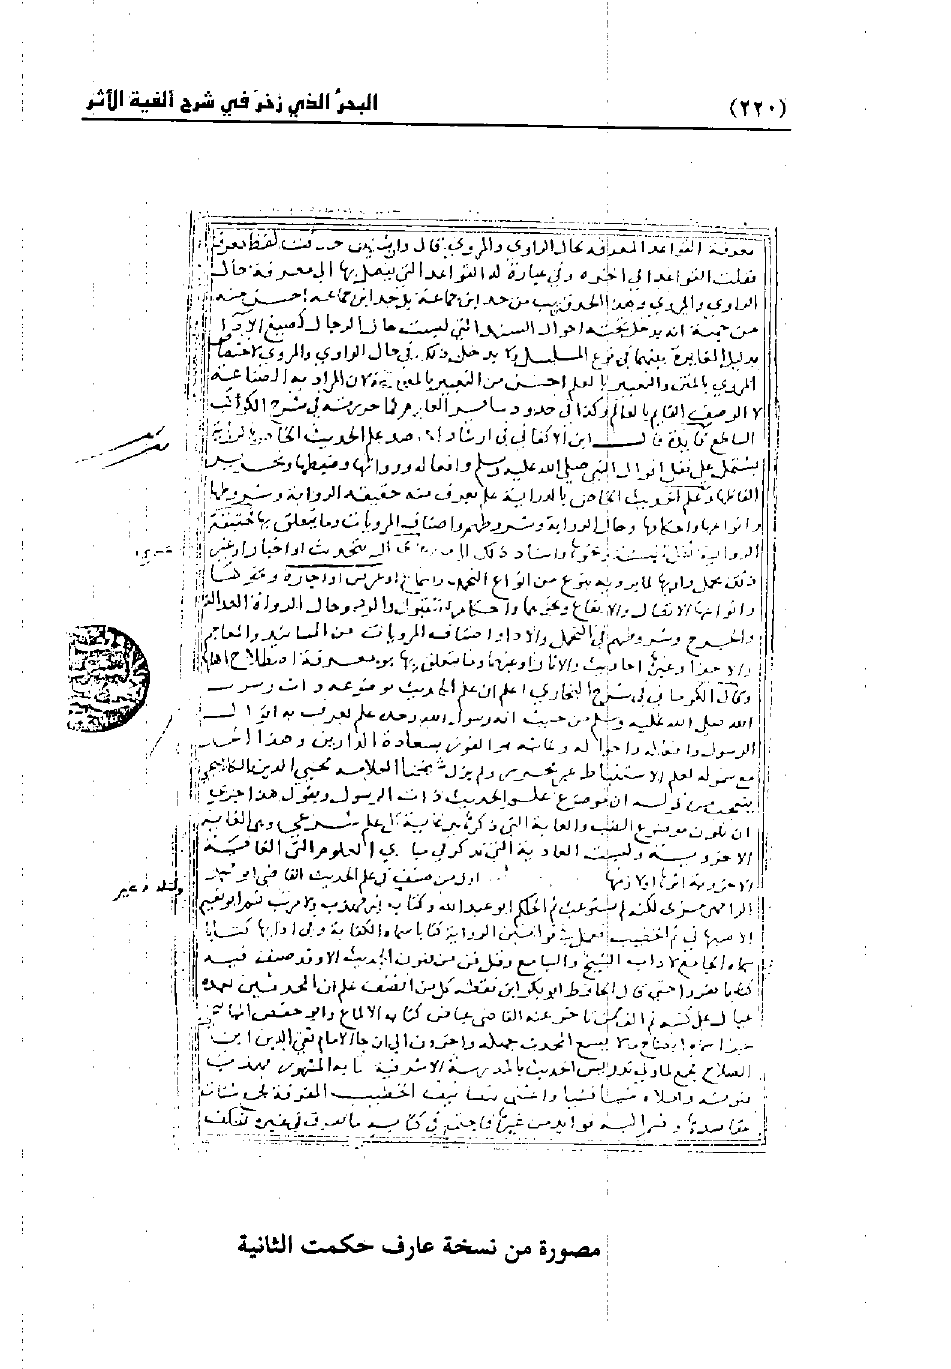 (٢٢٠)
البحرُ الذي زخرَ في شرح ألفية الأثر
معرفة القواعد المعرفة بحال الراوي والمروي قال وان شئت حذفت لفظ معرفة
فقلت القواعد الى اخره وفي عبارة له القواعد التي يتوصل بها الى معرفة حال
الراوي والمروي وهذا الحد قريب من حد ابن جماعة بل حد ابن جماعة احسن منه
من جهة انه يدخل تحته احوال السند التي ليست حال الرجال كصيغ الاداء
في نوع المسلسل ولا يدخل ذلك في حال الراوي والمروي
المروي بالمتن والتعبير بالعلم احسن من التعبير بالمعرفة لان المراد به الصناعة
لا الوصف القائم بالعالم وكذا في حدود سائر العلوم كما حررته في شرح الكوكب
الساطع فائدة قال ابن الاكفاني في ارشاد علم الحديث الخاص بالرواية
يشتمل على نقل اقوال النبي صلى الله عليه وسلم وافعاله وروايتها وضبطها وتحرير
الفاظها وعلم الحديث الخاص بالدراية علم يعرف منه حقيقة الرواية وشروطها
وانواعها واحكامها وحال الرواية وشروطهم واصناف المرويات وما يتعلق بها فحقيقة
الرواية نقل السنة ونحوها واسناد ذلك الى من عزى اليه بتحديث او اخبار او غير
ذلك تحمل راويها لما يرويه بنوع من انواع التحمل من سماع او عرض او اجازة ونحوها
وانواعها الاتصال والانقطاع ونحوهما واحكامها القبول والرد وحال الرواة العدالة
والجرح وشروطهم في التحمل والاداء واصناف المرويات من المسانيد والمعاجم
والاجزاء وغيرها احاديث واثارا وغيرها وما يتعلق بها هو معرفة اصطلاح اهلها
وقال الكرماني في شرح البخاري اعلم ان علم الحديث موضوعه ذات رسول
الله صلى الله عليه وسلم من حيث انه رسول الله وحده علم يعرف به اقوال
الرسول وافعاله واحواله وغايته هو الفوز بسعادة الدارين وهذا الحد
مع شموله لعلم الاستنباط غير محرر ولم يزل شيخنا العلامة محيي الدين الكافيجي
يتعجب من قوله ان موضوع علم الحديث ذات الرسول ويقول هذا
ان يكون موضوع الطب والغاية التي ذكرها غاية كل علم شرعي وهي الغاية
الاخروية وليست الغاية التي تذكر في مبادي العلوم التي الغاية
الاخروية اول من صنف في علم الحديث القاضي ابو محمد
الرامهرمزي لكنه لم يستوعب ثم الحاكم ابو عبد الله وكتابه لم يهذب ولا مرتب ثم ابو نعيم
الاصبهاني ثم الخطيب فعمل في قوانين الرواية كتابا سماه الكفاية وفي ادابها كتابا
سماه الجامع لاداب الشيخ والسامع وقل فن من فنون الحديث الا وقد صنف فيه
كتابا مفردا حتى قال الحافظ ابو بكر ابن نقطة كل من انصف علم ان المحدثين بعده
عيال على كتبه ثم تاخر عنه القاضي عياض كتابه الالماع وابو حفص الميانجي
جزءا سماه ما لا يسع المحدث جهله واخرون الى ان جاء الامام تقي الدين ابن
الصلاح فجمع لما ولي تدريس الحديث بالمدرسة الاشرفية كتابه المشهور فهذب
فنونه واملاه شيئا فشيئا واعتنى بتصانيف الخطيب المفرقة فجمع شتات
مقاصدها وضم اليه فوائد من غيرها فاجتمع في كتابه ما تفرق في غيره فعكف
مصورة من نسخة عارف حكمت الثانية